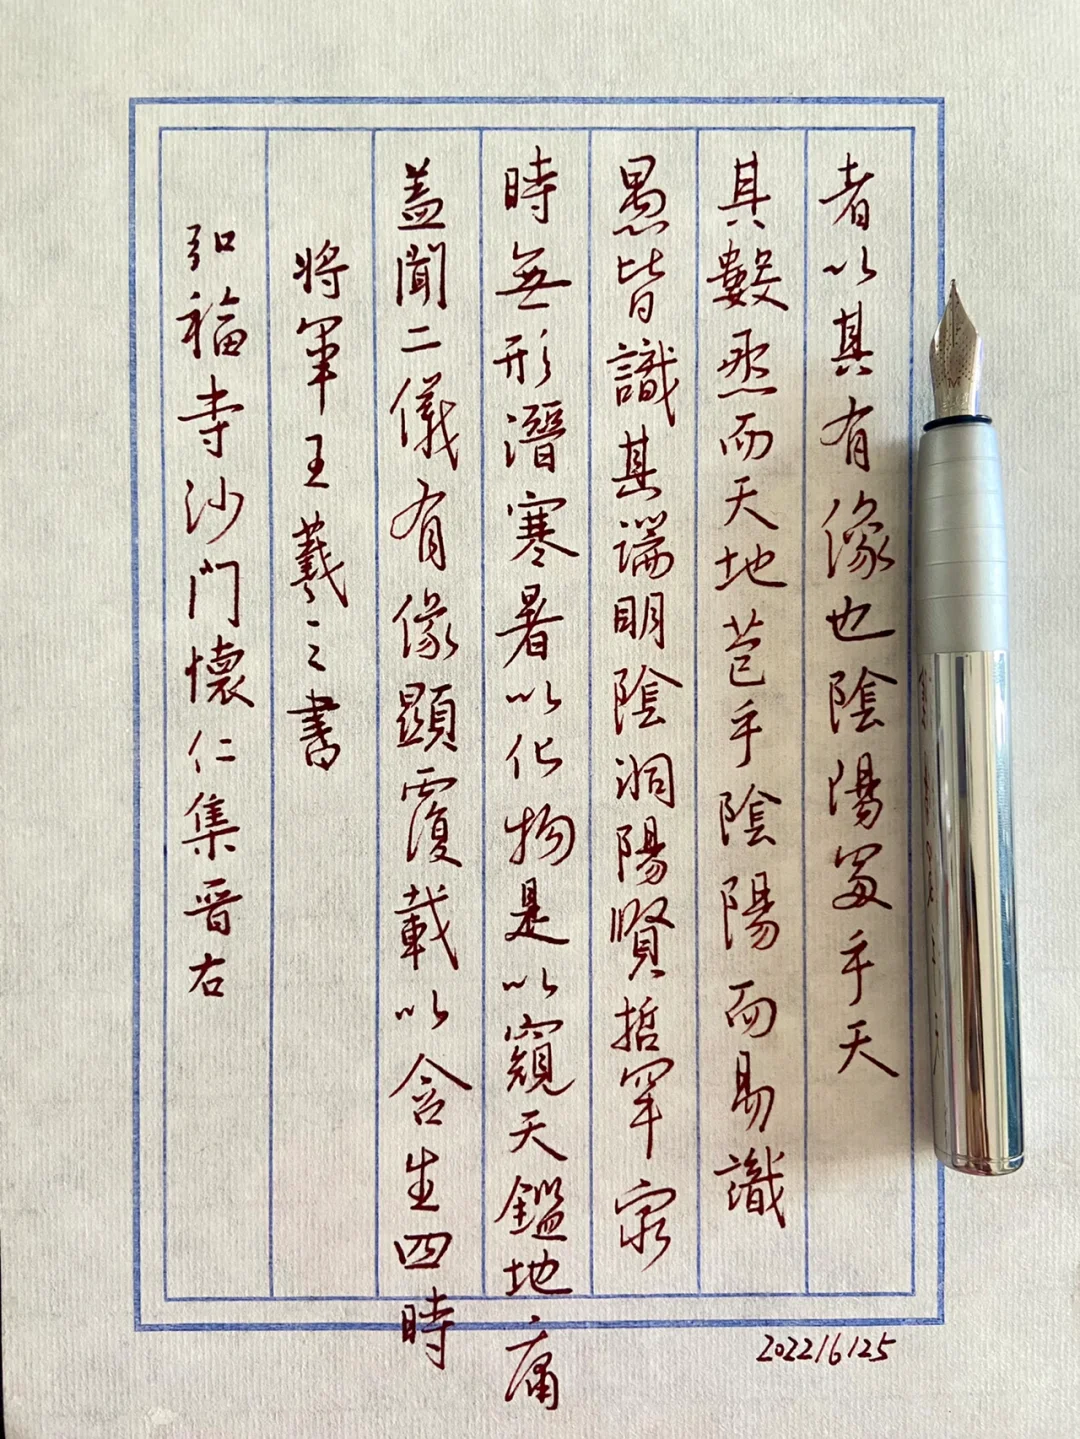 弘福寺沙門懷仁集晉右
將軍王羲之書
蓋聞二儀有像顯覆載以含生四時
時無形潛寒暑以化物是以窺天鑑地庸
愚皆識其端明陰洞陽賢哲罕窮
其數然而天地苞乎陰陽而易識
者以其有像也陰陽處乎天
2022/6/25